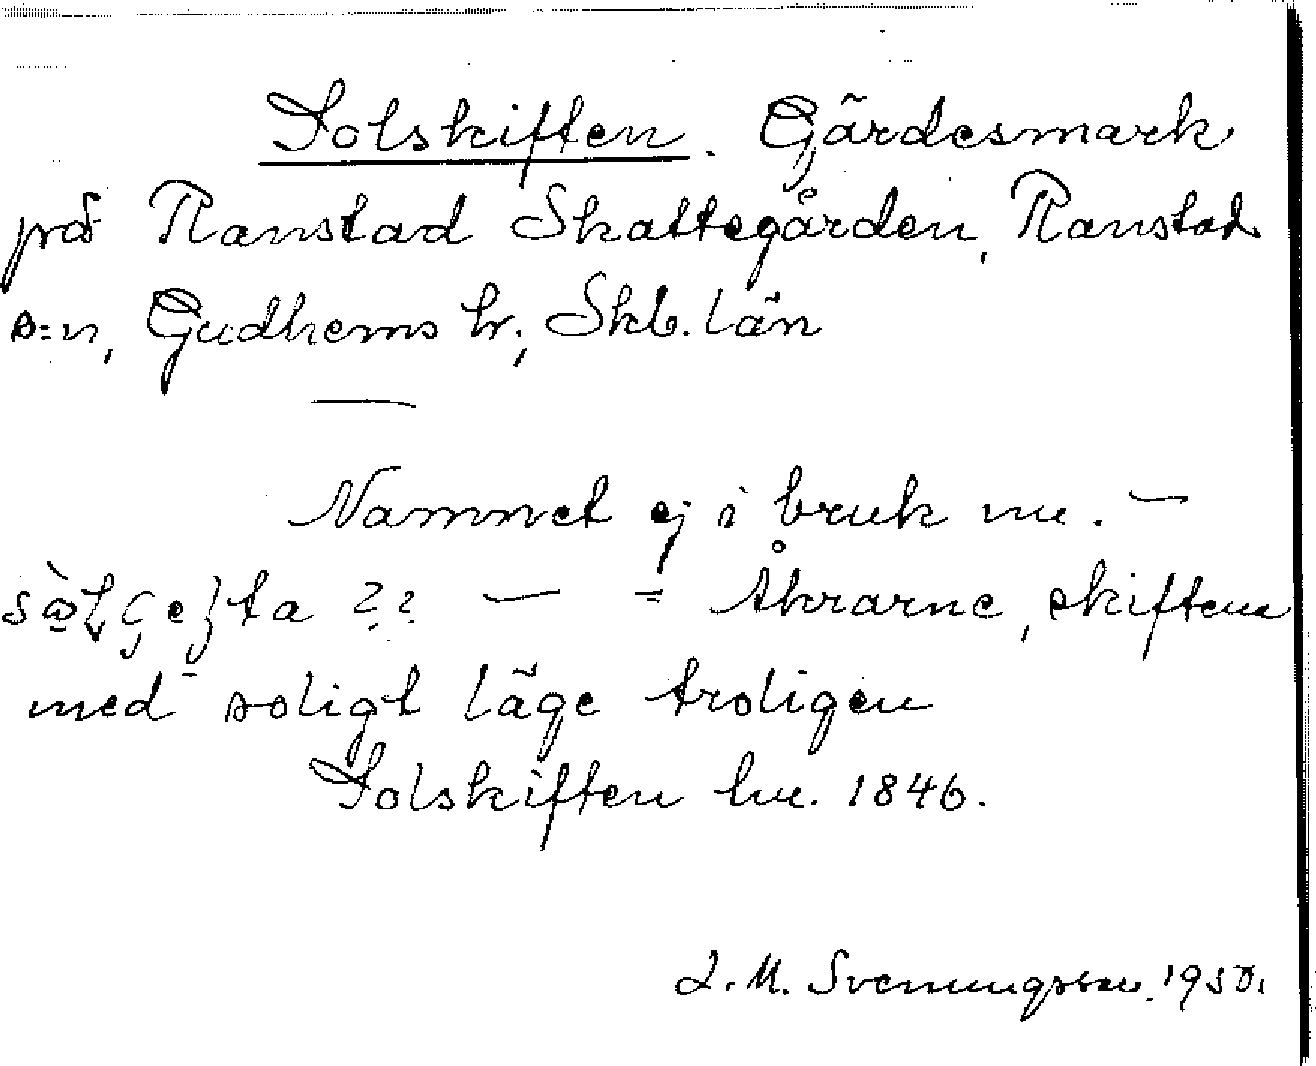 Solskiften. Gärdesmark
på Ranstad Skattegården, Ranstads
s:n, Gudhems hr; Skb. län
Namnet ej i bruk nu. —
?? — = Åkrarne, skiftena
med soligt läge troligen
Solskiften hn. 1846.
J. M. Svenungsson. 1950.